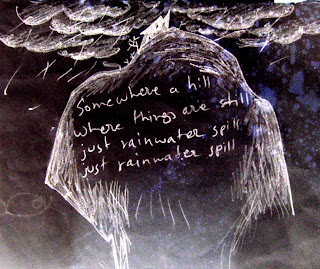 Somewhere a hill
where things are still
just rainwater spill
just rainwater spill